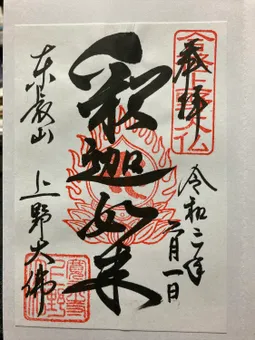 奉拝
上野大仏
令和二年
月一日
釈迦如来
東叡山 上野大佛